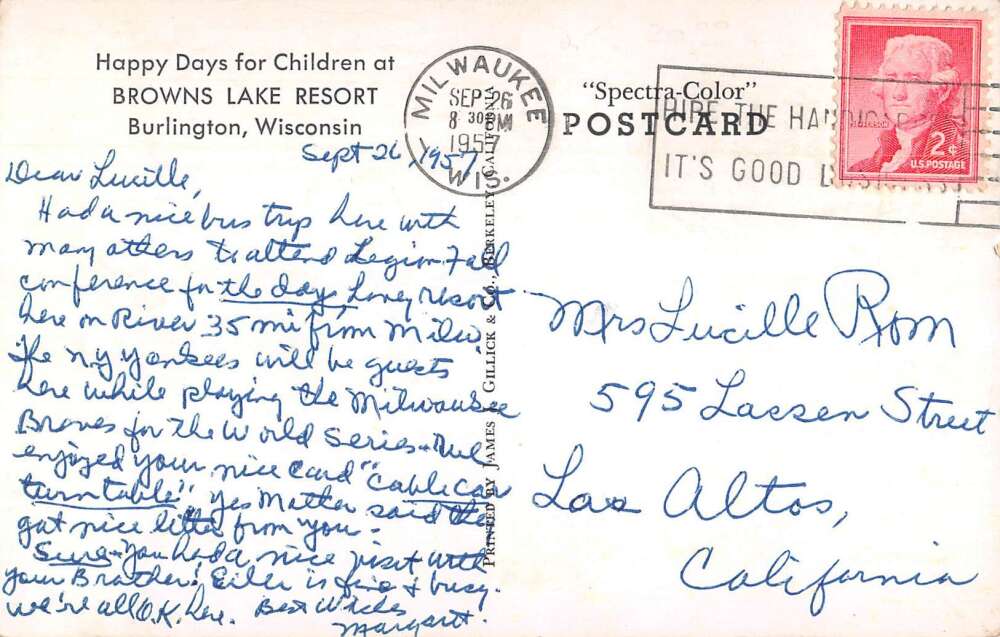 Happy Days for Children at
BROWNS LAKE RESORT
Burlington, Wisconsin
MILWAUKEE
SEP 26
8 30 PM
1957
WIS.
"Spectra-Color"
POSTCARD
HIRE THE HANDICAPPED
IT'S GOOD BUSINESS
2¢
U.S. POSTAGE
PRINTED BY JAMES J. GILLICK & CO., BERKELEY, CALIFORNIA
Sept 26, 1957
Dear Lucille,
Had a nice bus trip here with
many others to attend Legion Fall
conference for the day, Lovely resort
here on River 35 mi from Milw.
The N.Y. Yankees will be guests
here while playing the Milwaukee
Braves for the World Series - We
enjoyed your nice card "Cable car
turntable". Yes Mother said she
got nice letter from you.
Sure you had a nice visit with
your Brother! Eiler is fine & busy.
We're all O.K. here. Best Wishes
Margaret.
Mrs Lucille Rom
595 Lassen Street
Los Altos,
California